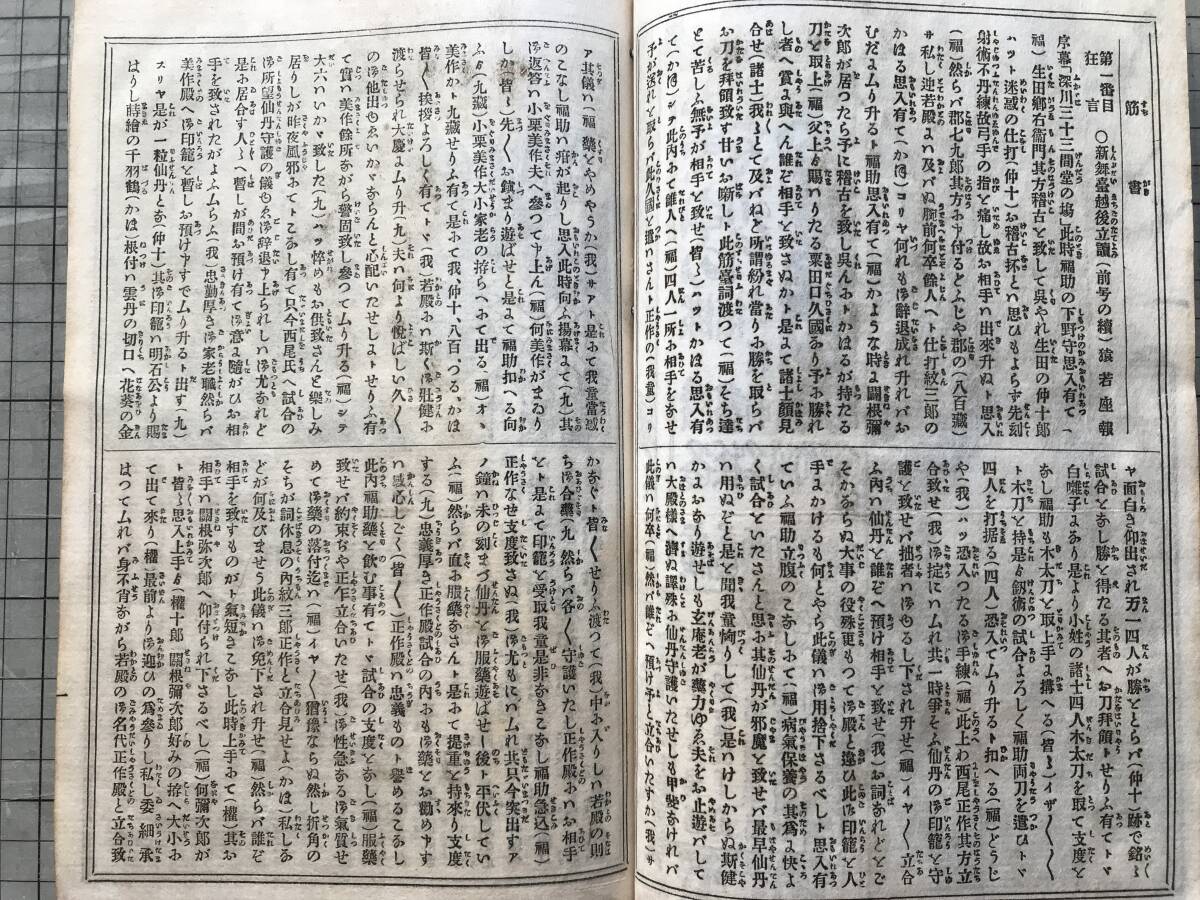 筋書
第一番目狂言 ○新舞臺越後立讀(前号の續)猿若座報
序幕深川三十三間堂の場此時福助の下野守思入有て(
福)生田郷右衞門其方稽古を致して呉やれ生田の仲十郎
ハット迷惑の仕打(仲十)お稽古抔とハ思ひもよらず先刻
射術不丹練故弓手の指を痛し故お相手ハ出來升ぬト思入
(福)然らバ郡七九郎其方お申付るどふじや郡の(八百藏)
サ私し迚若殿よハ及バぬ腕前何卒餘人へト仕打紋三郎の
かほる思入有て(かほ)コリヤ何れも御辞退成れ升れバお
むだよムり升るト福助思入有て(福)かような時よ關根彌
次郎が居つたら予に稽古を致し呉んおトかほるが持たる
刀を取上(福)父上ゟ賜ハりたる粟田口久國あり予お勝れ
し者へ賞よ與へん誰ぞ相手を致さぬかト是よて諸士顔見
合せ(諸士)我々とて及バねど所謂紛れ當りお勝を取らバ
お刀を拝領致す甘いお噺しト此筋臺詞渡つて(福)そち達
とて苦しふ無予が相手を致せ(皆々)ハットかほる思入有
て(かほ)シテ此内おて誰人(福)四人一所お相手をおせ
予が送れを取らバ此久國を遣ハさんト正作の(我童)コリ
ヤ面白き仰出され万一四人が勝をとらバ(仲十)跡で銘々
試合をおし勝を得たる其者へお刀拝領トせりふ有てトヾ
白囃子よあり是より小姓の諸士四人木太刀を取て支度を
おし福助も木太刀を取上手よ搆へる(皆々)イザ〱〱
ト木刀を持是ゟ劔術の試合よろしく福助両刀を遣ひトヾ
四人を打据る(四人)恐入てムり升るト扣へる(福)どうじ
や(我)ハッ恐入つたる御手練(福)此上わ西尾正作其方立
合致せ(我)御掟にハムれ共一時爭そふ仙丹の御印籠を守
護を致せバ拙者ハ御ゆるし下され升せ(福)イヤ〱立合
ふ内ハ仙丹を誰ぞへ預け相手を致せ(我)お詞おれどとご
そかるらぬ大事の役殊更もつて御殿を違ひ此御印籠を人
手よかけるも何とやら此儀ハ御用捨下さるべしト思入有
ていふ福助立腹のこおしみて(福)病氣保養の其爲よ快よ
く試合をいたさんと思お其仙丹が邪魔を致せバ最早仙丹
ハ用ぬぞと是を聞我童恟りして(我)是ハけしからぬ斯健
かよおあり遊せしも玄庵老が藥力ゆゑ夫をお止遊バして
ハ大殿様へ濟ぬ譯殊お仙丹守護いたせしも甲斐おけれバ
此儀ハ何卒(福)然バ誰ぞへ預け予と立合いたすか(我)サ
ア其儀ハ(福)藥をやめやうか(我)サアト是よて我童當惑
のこなし福助の疳が起りし思入此時向ふ揚幕よて(九)其
御返答ハ小栗美作夫へ參つて申上ん(福)何美作がまゐり
しか皆々先々お鎭まり遊ばせと是よて福助扣へる向
ふゟ(九藏)小栗美作大小家老の拵らへみて出る(福)オヽ
美作かト九藏せりふ有て是おて我、仲十、八百、つる、かほ
皆々挨拶よろしく有てトヾ(我)若殿おハ斯く御壯健お
渡らせられ大慶よムり升(九)夫ハ何より悦ばしい久々
の御他出ゆゑいかヾおらんと心配いたせしよトせりふ有
て實ハ美作餘所おがら警固致し參つてムり升る(福)シテ
大六ハいかヾ致した(九)ハッ悴めもお供致さんと樂しみ
居りしが昨夜風邪おてトこおし有て只今西尾氏へ試合の
御所望仙丹守護の儀ゆゑ御辞退申上られしハ御尤おれど
是お居合す人々へ暫しが間お預け有て御意よ隨がひお相
手を致されたがよふムらふ(我)忠勤厚き御家老職然らバ
美作殿へ御印籠を暫しお預け申すでムり升るト出す(九)
スリヤ是が一粒仙丹とお(仲十)其御印籠ハ明石公より賜
はりし蒔繪の千羽鶴(かほ)根付ハ雲丹の切口へ花葵の金
かなぐト皆々せりふ渡つて(我)中お入りしハ若殿の則
ち御合藥(九)然らバ各々守護いたし正作殿おハお相手
とト是よて印籠を受取我童是非おきこおし福助急込(福)
正作なせ支度致さぬ(我)御尤もにハムれ共只今突出すア
ノ鐘ハ未の刻まづ仙丹を御服藥遊ばせ−後ト平伏してい
ふ(福)然らバ直お服藥おさんト是おて提重を持來り支度
する(九)忠義厚き正作殿試合の内おも御藥をお勸め申す
ハ感心しごく(皆々)正作殿の忠義ものト譽めるこおし
此内福助藥を飲む事有てトヾ試合の支度をおし(福)服藥
致せバ約束おや正作立合いたせ(我)御性急おる御氣質せ
めて御藥の落付迄ハ(福)イヤ〱猶豫ならぬ然し折角の
そちが詞休息の内紋三郎正作と立合見せよ(かほ)私しお
どが何及びませう此儀ハ御免下され升せ(福)然らバ誰ぞ
相手を致すものがト氣短きこおし此時上手おて(權)其お
相手ハ關根弥次郎へ仰付られ下さるべし(福)何彌次郎が
ト皆々思入上手ゟ(權十郎)關根彌次郎好みの拵へ大小お
て出て來り(權)最前より御迎ひの爲參りし私し委細承
はつてムれバ身不肖おがら若殿の御名代正作殿と立合致